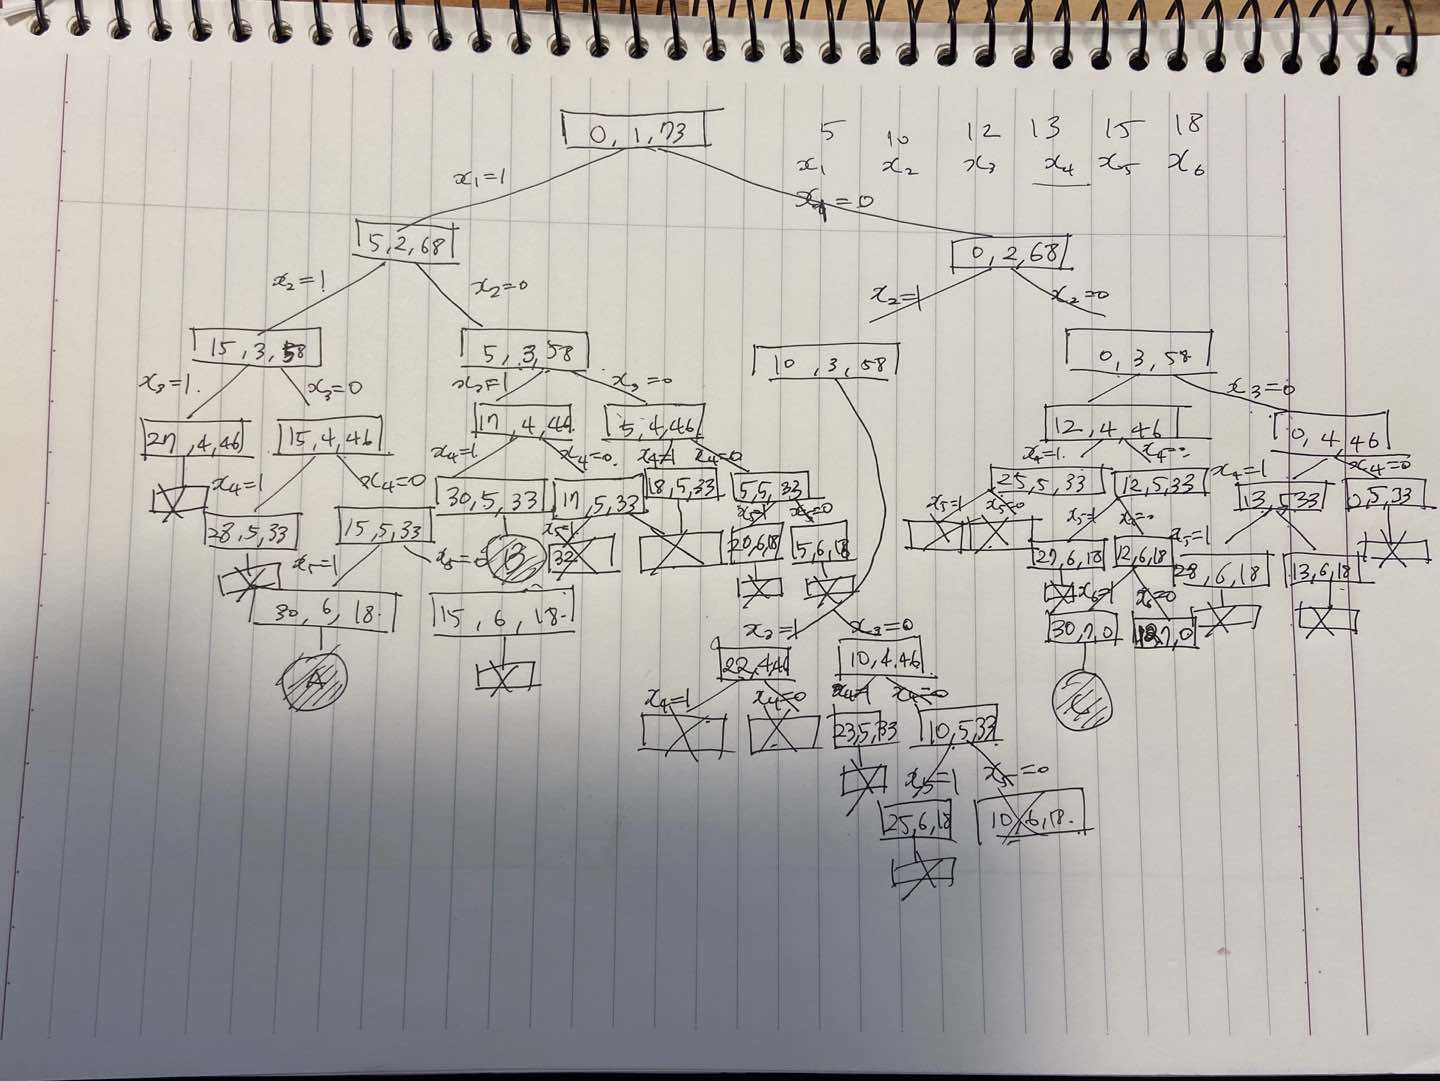 0, 1, 73
5 10 12 13 15 18
x₁ x₂ x₃ x₄ x₅ x₆
x₁=1
=0
5,2,68
0,2,68
x₂=1
x₂=0
x₂=1
x₂=0
15,3,58
5,3,58
10,3,58
0,3,58
x₃=1.
x₃=0
x₃=1
x₃=0
x₃=0
27,4,46
15,4,46
17,4,46
5,4,46
12,4,46
0,4,46
x₄=1
x₄=0
x₄=1
x₄=0.
x₄=1
x₄=0
x₄=1.
x₄=
x₄=1
x₄=0
28,5,33
15,5,33
30,5,33
17,5,33
18,5,33
5,5,33
25,5,33
12,5,33
13,5,33
0,5,33
x₅=1
x₅=0
B
x₅=1
32
x₅=1
x₅=0
x₅=1
x₅=0
x₅=1
x₅=1
20,6,18
5,6,18
27,6,18
12,6,18
28,6,18
13,6,18
30,6,18.
15,6,18.
x₆=1
x₆=0
A
x₃=1
x₃=0
30,7,0
12,7,0
22,4,46
10,4,46
C
x₄=1
x₄=0
x₄=1
x₄=0
23,5,33
10,5,33
x₅=1
x₅=0
25,6,18
10,6,18.